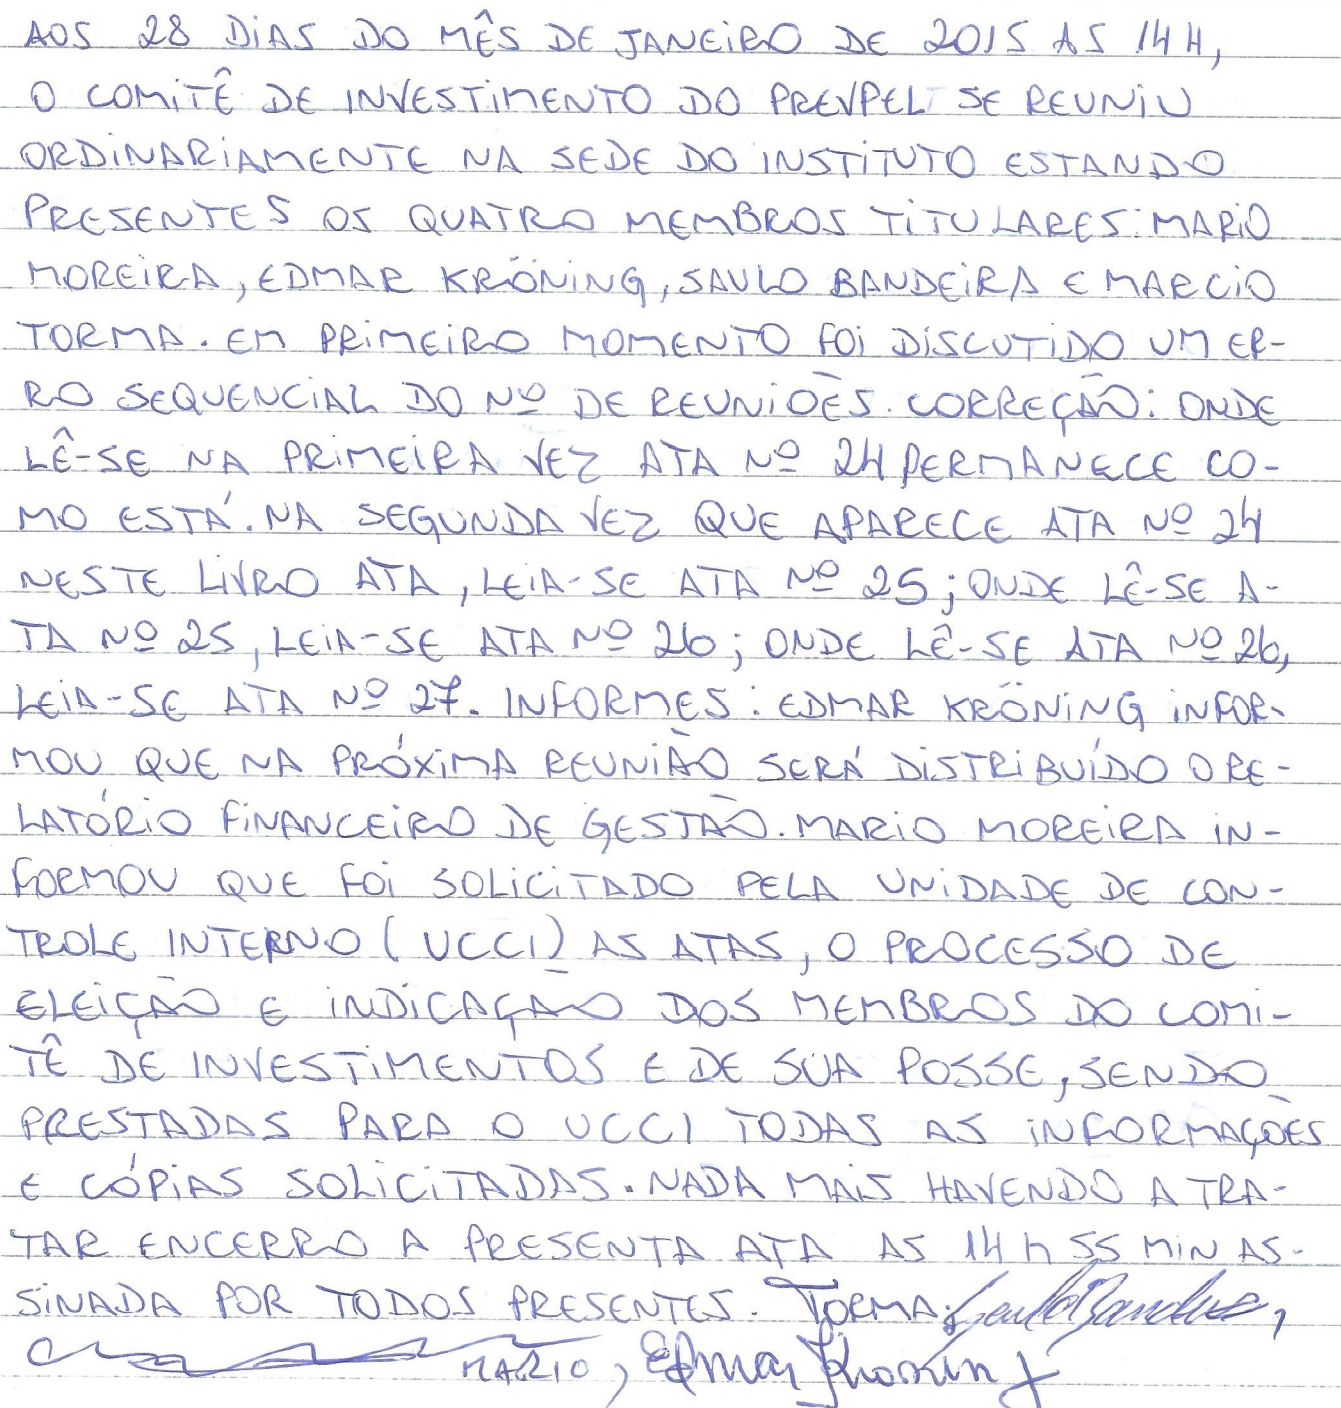 AOS 28 DIAS DO MÊS DE JANEIRO DE 2015 AS 14H,
O COMITÊ DE INVESTIMENTO DO PREVPEL SE REUNIU
ORDINARIAMENTE NA SEDE DO INSTITUTO ESTANDO
PRESENTES OS QUATRO MEMBROS TITULARES: MARIO
MOREIRA, EDMAR KRÖNING, SAULO BANDEIRA E MARCIO
TORMA. EM PRIMEIRO MOMENTO FOI DISCUTIDO UM ER-
RO SEQUENCIAL DO Nº DE REUNIÕES. CORREÇÃO: ONDE
LÊ-SE NA PRIMEIRA VEZ ATA Nº 24 PERMANECE CO-
MO ESTÁ. NA SEGUNDA VEZ QUE APARECE ATA Nº 24
NESTE LIVRO ATA, LEIA-SE ATA Nº 25; ONDE LÊ-SE A-
TA Nº 25, LEIA-SE ATA Nº 26; ONDE LÊ-SE ATA Nº 26,
LEIA-SE ATA Nº 27. INFORMES: EDMAR KRÖNING INFOR-
MOU QUE NA PRÓXIMA REUNIÃO SERÁ DISTRIBUÍDO O RE-
LATÓRIO FINANCEIRO DE GESTÃO. MARIO MOREIRA IN-
FORMOU QUE FOI SOLICITADO PELA UNIDADE DE CON-
TROLE INTERNO (UCCI) AS ATAS, O PROCESSO DE
ELEIÇÃO E INDICAÇÃO DOS MEMBROS DO COMI-
TÊ DE INVESTIMENTOS E DE SUA POSSE, SENDO
PRESTADAS PARA O UCCI TODAS AS INFORMAÇÕES
E CÓPIAS SOLICITADAS. NADA MAIS HAVENDO A TRA-
TAR ENCERRO A PRESENTA ATA AS 14 h 55 MIN AS-
SINADA POR TODOS PRESENTES. TORMA;
MARIO, Edmar